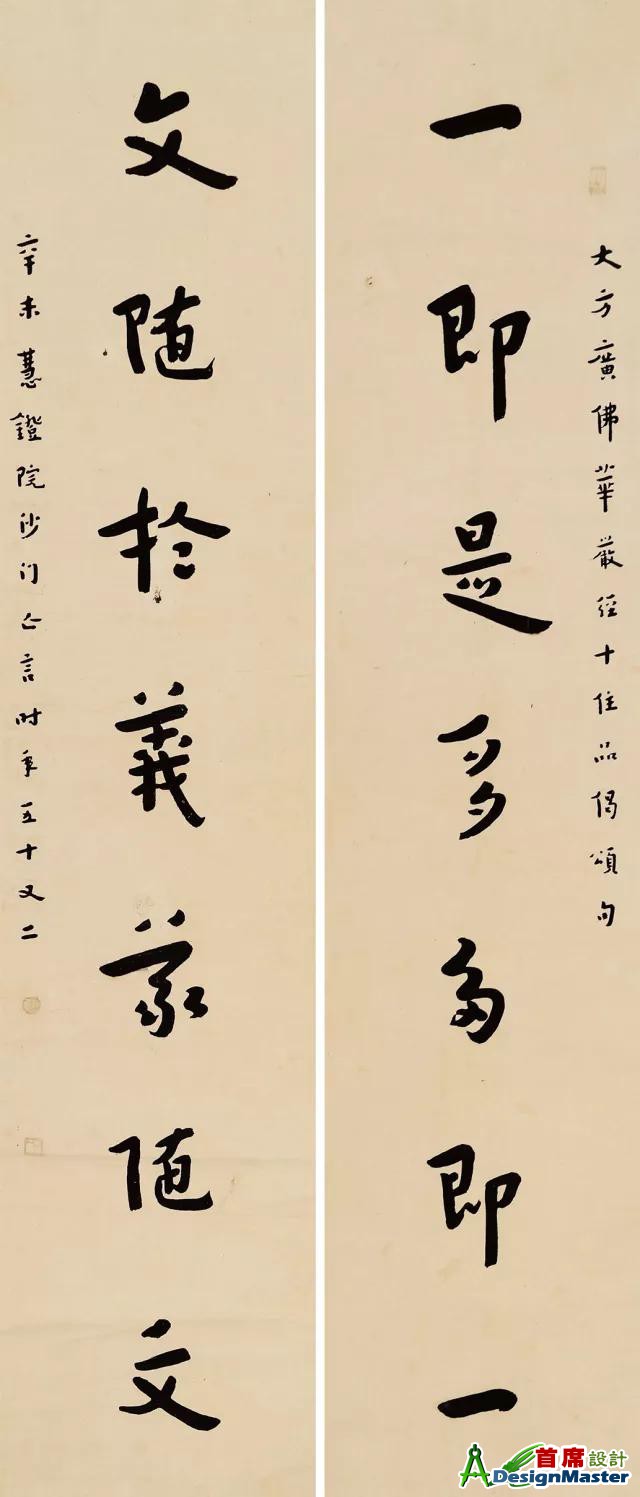 大方廣佛華嚴經十住品偈頌句
一即是多多即一
文隨於義義隨文
辛未慧鐙院沙門亡言時年五十又二
首席設計
DesignMaster